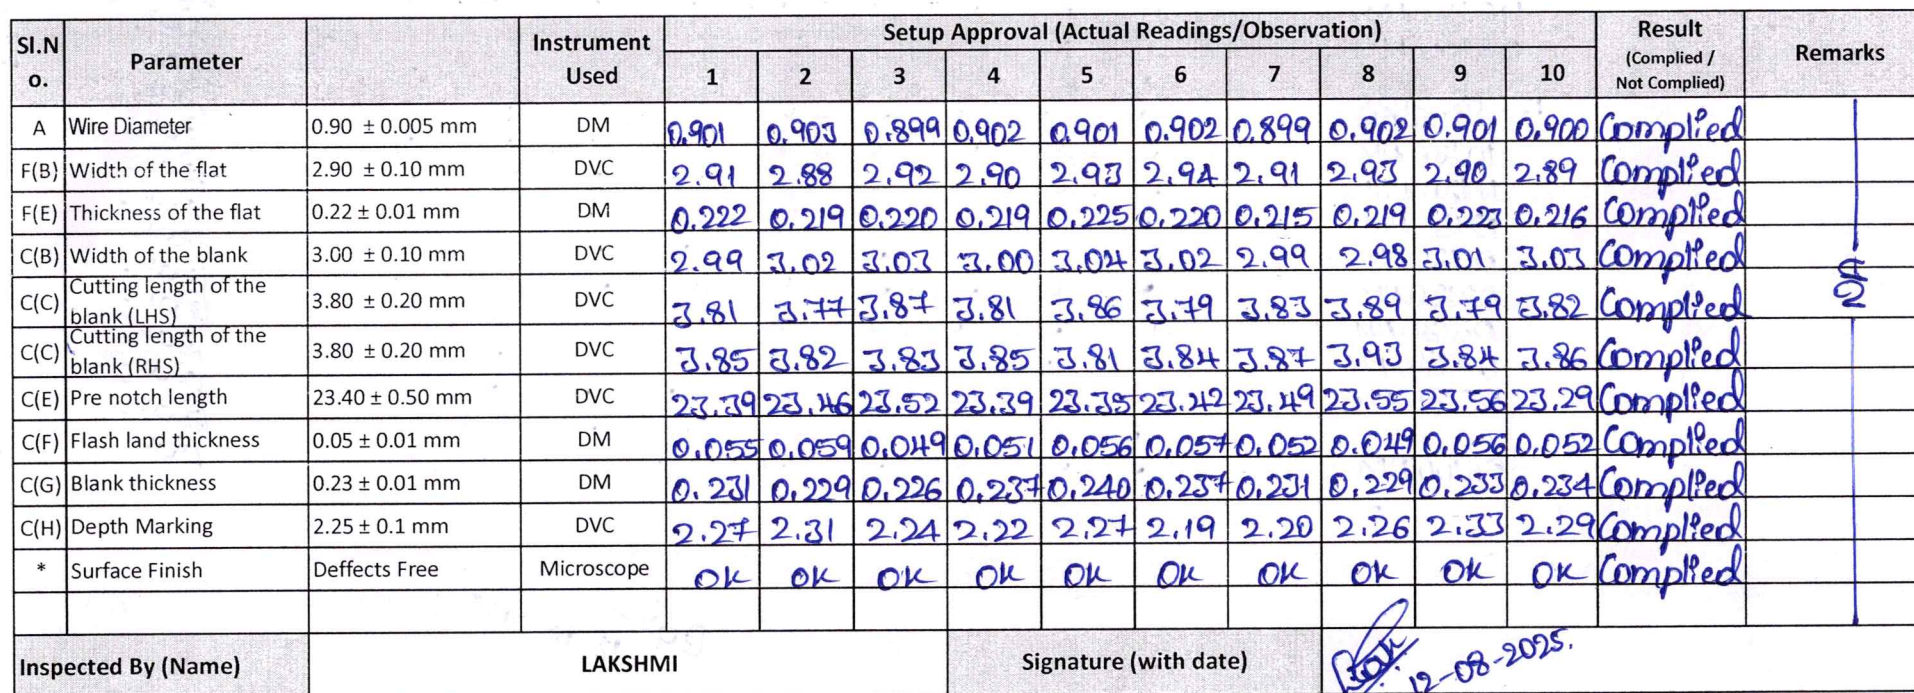 Sl.No. Parameter Instrument Used Setup Approval (Actual Readings/Observation) Result (Complied / Not Complied) Remarks
1 2 3 4 5 6 7 8 9 10
A Wire Diameter 0.90 ± 0.005 mm DM 0.901 0.903 0.899 0.902 0.901 0.902 0.899 0.902 0.901 0.900 Complied
F(B) Width of the flat 2.90 ± 0.10 mm DVC 2.91 2.88 2.92 2.90 2.93 2.94 2.91 2.93 2.90 2.89 Complied
F(E) Thickness of the flat 0.22 ± 0.01 mm DM 0.222 0.219 0.220 0.219 0.225 0.220 0.215 0.219 0.223 0.216 Complied
C(B) Width of the blank 3.00 ± 0.10 mm DVC 2.99 3.02 3.03 3.00 3.04 3.02 2.99 2.98 3.01 3.03 Complied
C(C) Cutting length of the blank (LHS) 3.80 ± 0.20 mm DVC 3.81 3.77 3.87 3.81 3.86 3.79 3.83 3.89 3.79 3.82 Complied
C(C) Cutting length of the blank (RHS) 3.80 ± 0.20 mm DVC 3.85 3.82 3.83 3.85 3.81 3.84 3.87 3.93 3.84 3.86 Complied
C(E) Pre notch length 23.40 ± 0.50 mm DVC 23.39 23.46 23.52 23.39 23.35 23.42 23.49 23.55 23.56 23.29 Complied
C(F) Flash land thickness 0.05 ± 0.01 mm DM 0.055 0.059 0.049 0.051 0.056 0.057 0.052 0.049 0.056 0.052 Complied
C(G) Blank thickness 0.23 ± 0.01 mm DM 0.231 0.229 0.226 0.237 0.240 0.237 0.231 0.229 0.233 0.234 Complied
C(H) Depth Marking 2.25 ± 0.1 mm DVC 2.27 2.31 2.24 2.22 2.27 2.19 2.20 2.26 2.33 2.29 Complied
* Surface Finish Deffects Free Microscope OK OK OK OK OK OK OK OK OK OK Complied
Inspected By (Name) LAKSHMI Signature (with date) 12-08-2025.